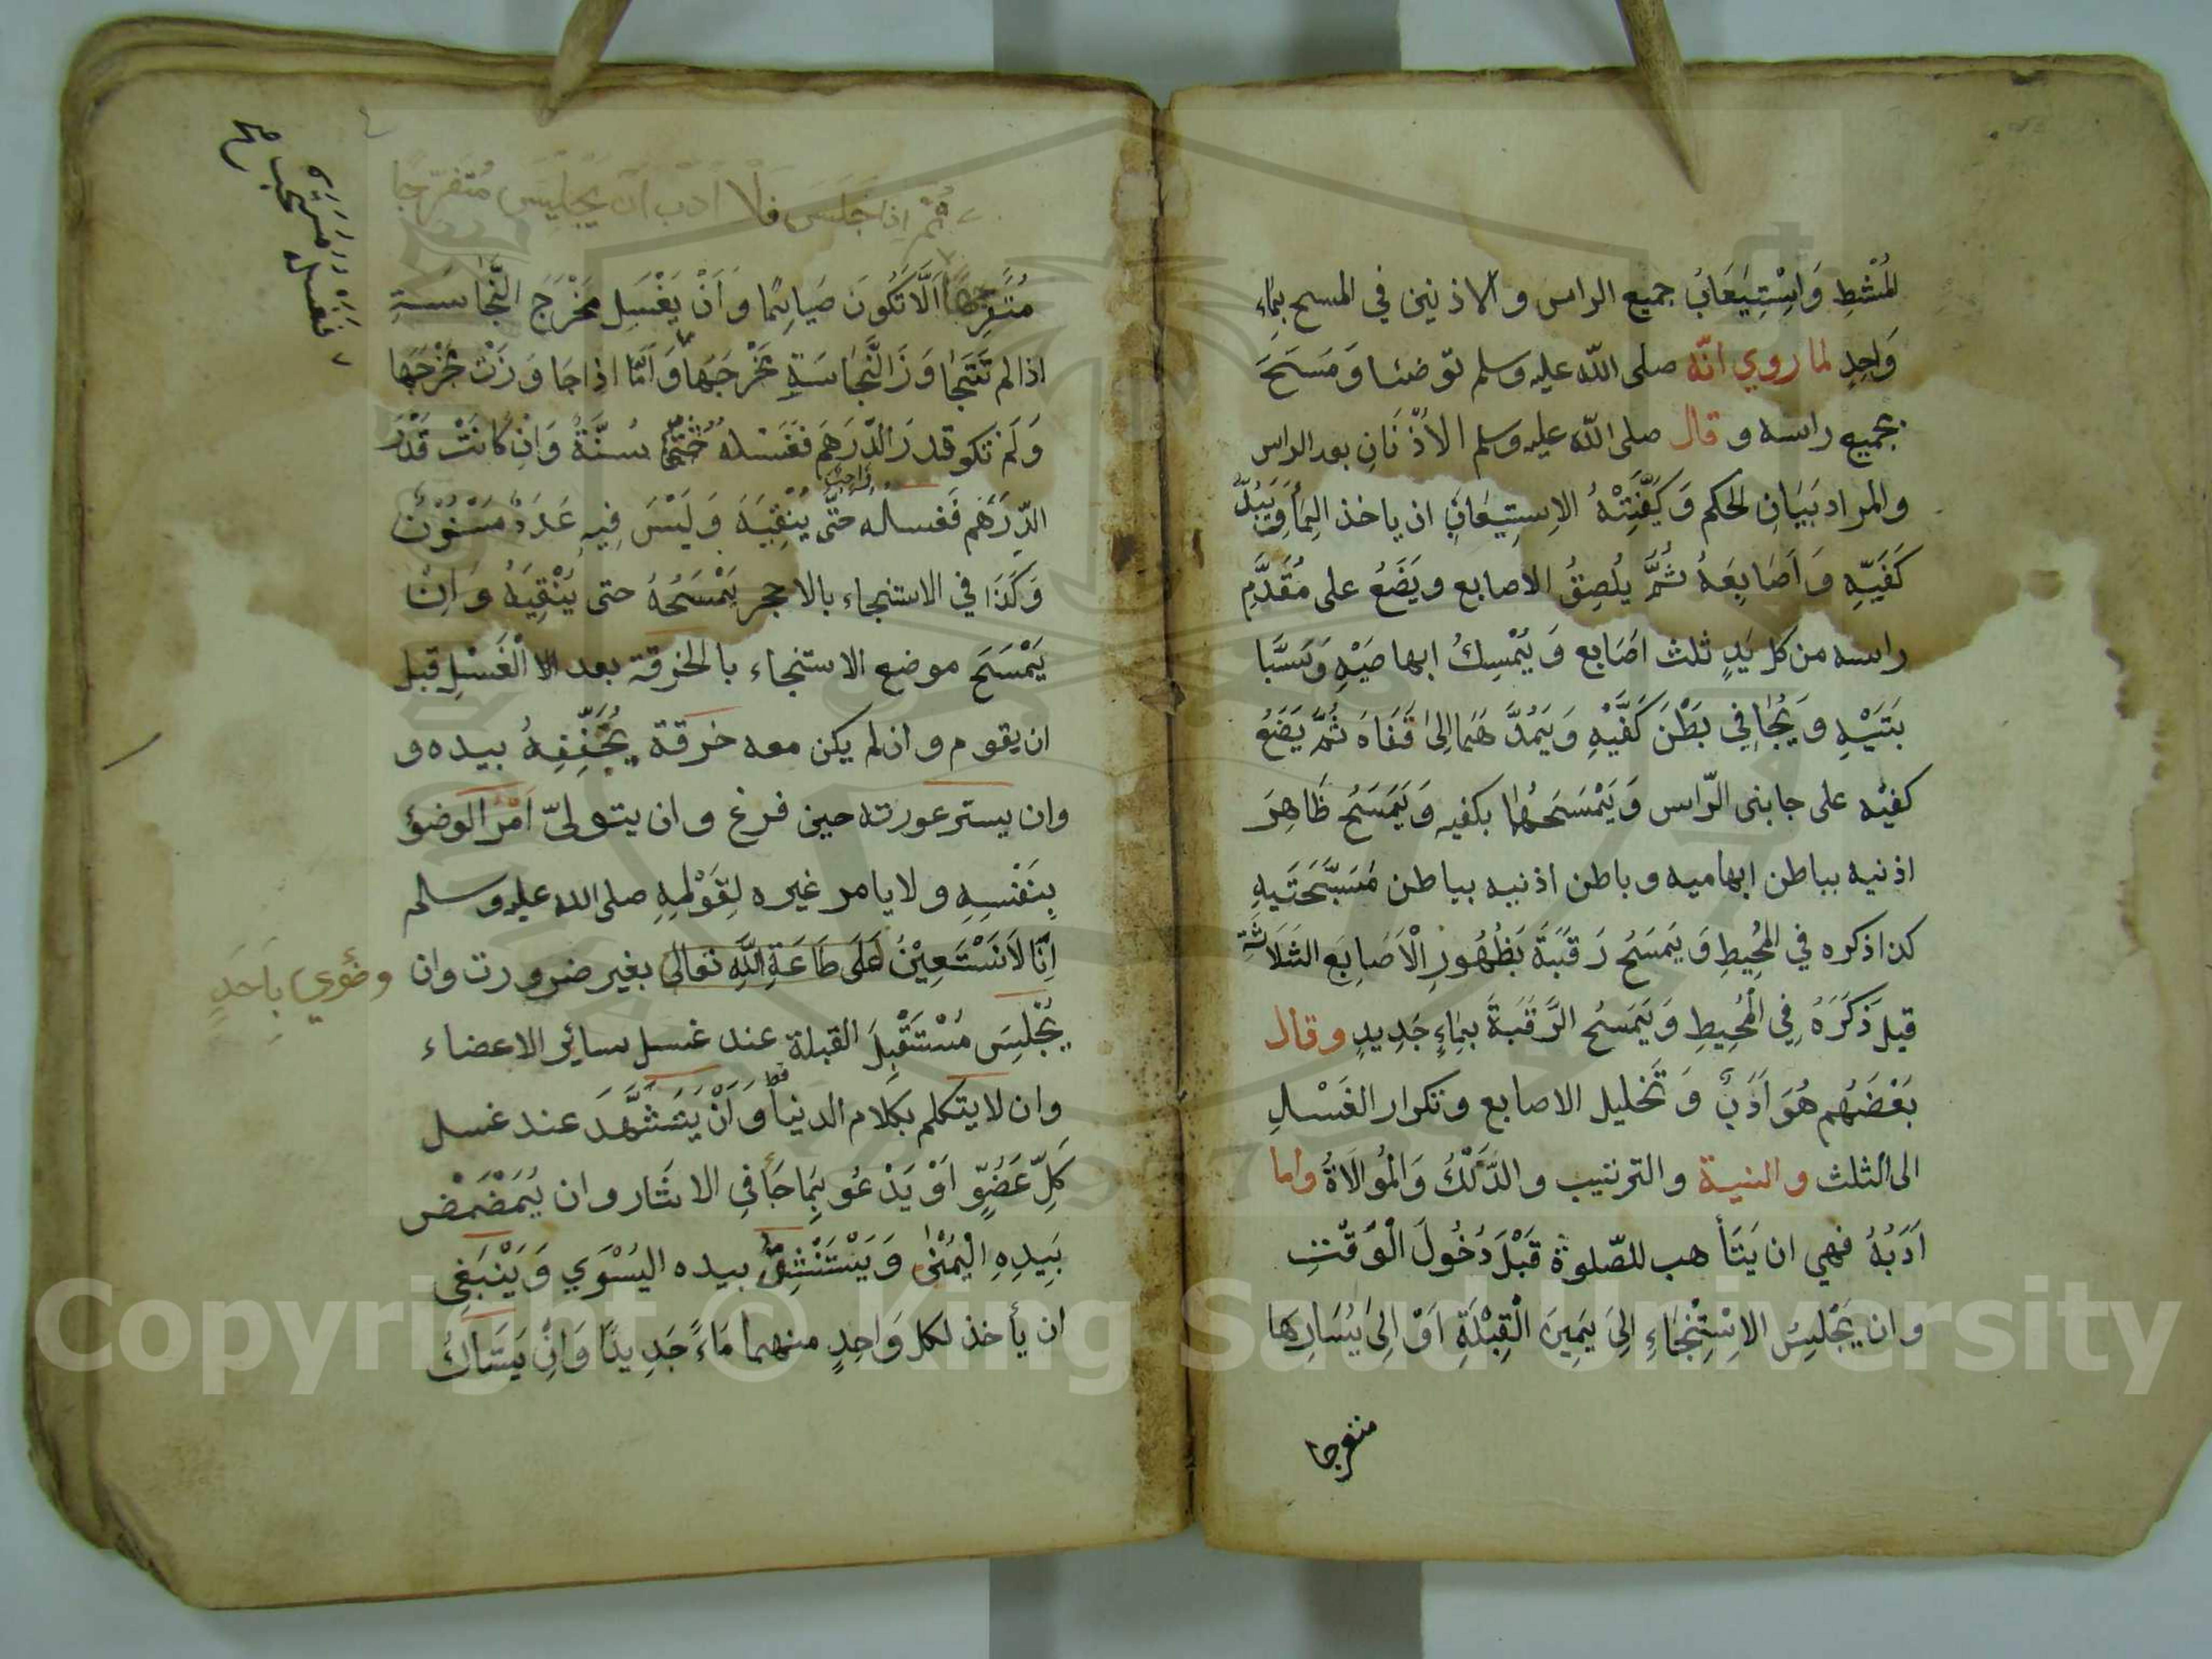 المُشْطِ وَاِسْتِيعَابُ جميع الراس والاذنين في المسح بِمَاءِ
وَاحِدٍ لما روي انّه صلى الله عليه وسلم توضئا وَمَسَحَ
بجميع راسه وقال صلى الله عليه وسلم الأُذْنَانِ بعد الراس
والمراد بَيَانِ الحكم وَكَيْفِيَّتُهُ الاِسِتِيعَابِ ان ياخذ المَاَءَ وَيَبُلَّ
كَفَيّهِ وَاَصَابِعَهُ ثُمَّ يلُصِقُ الاصابع ويَضَعُ على مُقَدَّمِ
راسه من كل يَدٍ ثلث اَصَابع وَيُمْسِكُ ابهاميْهِ وَسَبَّا
بَتَيْهِ وَيُجَافِي بَطْنَ كَفَّيْهِ وَيَمُدَّ هُمَا اِلىَ قَفَاهَ ثُمَّ يَضَعُ
كفيْه على جابنى الرّاس وَيَمْسَحَهُمَا بكفيه وَيَمَسَحُ ظَاهِرَ
اذنيه بباطن ابهاميه وباطن اذنيه بباطن مُسَبَّحَتَيهِ
كذا ذكره في المُحِيطِ وَيَمسَحُ رَقَبَةَ بَظُهُورِ الْاَصَابِعَ الثَلَاثَةِ
قيل ذَكَرَهُ فِي الْمُحِيطِ وَيَمَسحُ الرَّقَبَةَ بِمَاءٍ جَدِيدٍ وقال
بَعْضَهُم هُوَ اَدَبٌ وَتَخليل الاصابع وتكرار الغَسْلِ
الى الثلث والنية والترتيب والدَّلْكُ وَالْمُوالَاةُ واما
اَدَبُهُ فهي ان يَتَأهب للصّلوة قَبْلَ دُخُولَ الْوَقْتِ
وان يَجْلِسُ الاِسْتِنْجَاءِ اِلىَ يَمِينَ الْقِبْلَةِ اَوْ اِلىَ يَسَارِهَا
متفرجا
ثُمَّ اذا جَلَسَ فَلْاَ اَدَبَ اَن يَجْلِيسَ مُتَفَرّجًا
مُتَفَرِجًا اَلَّا تَكُونَ صَايِمًا وَاَنْ يَغْسَلِ مَخْرَجَ النَّجَاسَةِ
اذا لم تَتَجَاوَزَ النَّجَاسَةِ مَخْرَجَهَا وَاَمَّا اذا جَاوَزَتْ مَخْرَجَهَا
وَلَمْ تكو قدرَ الدّرَهَم فَغَسْلهُ سُنَّةُ وَاِنْ كَانَتْ قَدْرَ
الدِّرَهَم فَغَساله حَتَّى يُنْقِيَهَ وَلَيْسَ فِيهِ عَدَدٌ مَسْنُوْنٌ
واجب
وَكَذَا في الاستنجاء بالاحجر يَمْسَحُهُ حتى يُنْقِيَهُ وَاِنْ
يَمْسَحَ موضع الاستنجاء بالخرقة بعد الا الْغَسْلِ قبل
ان يقوم وان لم يكن معه خرقة يُجَفِّفِهُ بيده و
وان يستر عورته حين فرغ وان يتولىّ اَمْرَ الوضؤ
بِنَفْسِهِ ولا يامر غيره لِقَوْلِهِ صلى الله عليه وسلم
اِنَّا لاَ نَسْتَعِيْنُ عَلَى طَاعَةِ اللَّهِ تعالى بغير ضرورت وان
وضُؤي بِاَحَدٍ
يُجْلِسَ مُسْتَقْبِلَ القبلة عند غسل سايِر الاعضاء
وان لا يتكلم بكلام الدنيا وَاَنْ يَتَشَّهَدَ عند غسل
قط
كَلِّ عَضُوٍّ اَوْ يَدْعُو بِمَا جَأَ في الاثَار وان يُمَضْمَضْ
بَيِدِهِ الْيُمْنَى وَيَسْتَنْشِقُ بيده اليُسْرَي وَيَنْبَغِى
ان يأخذ لكل وَاحِدٍ منهما مَاءً جَدِيدًا وَاِنْ يَسَتَاكُ
Copyright © King Saud University